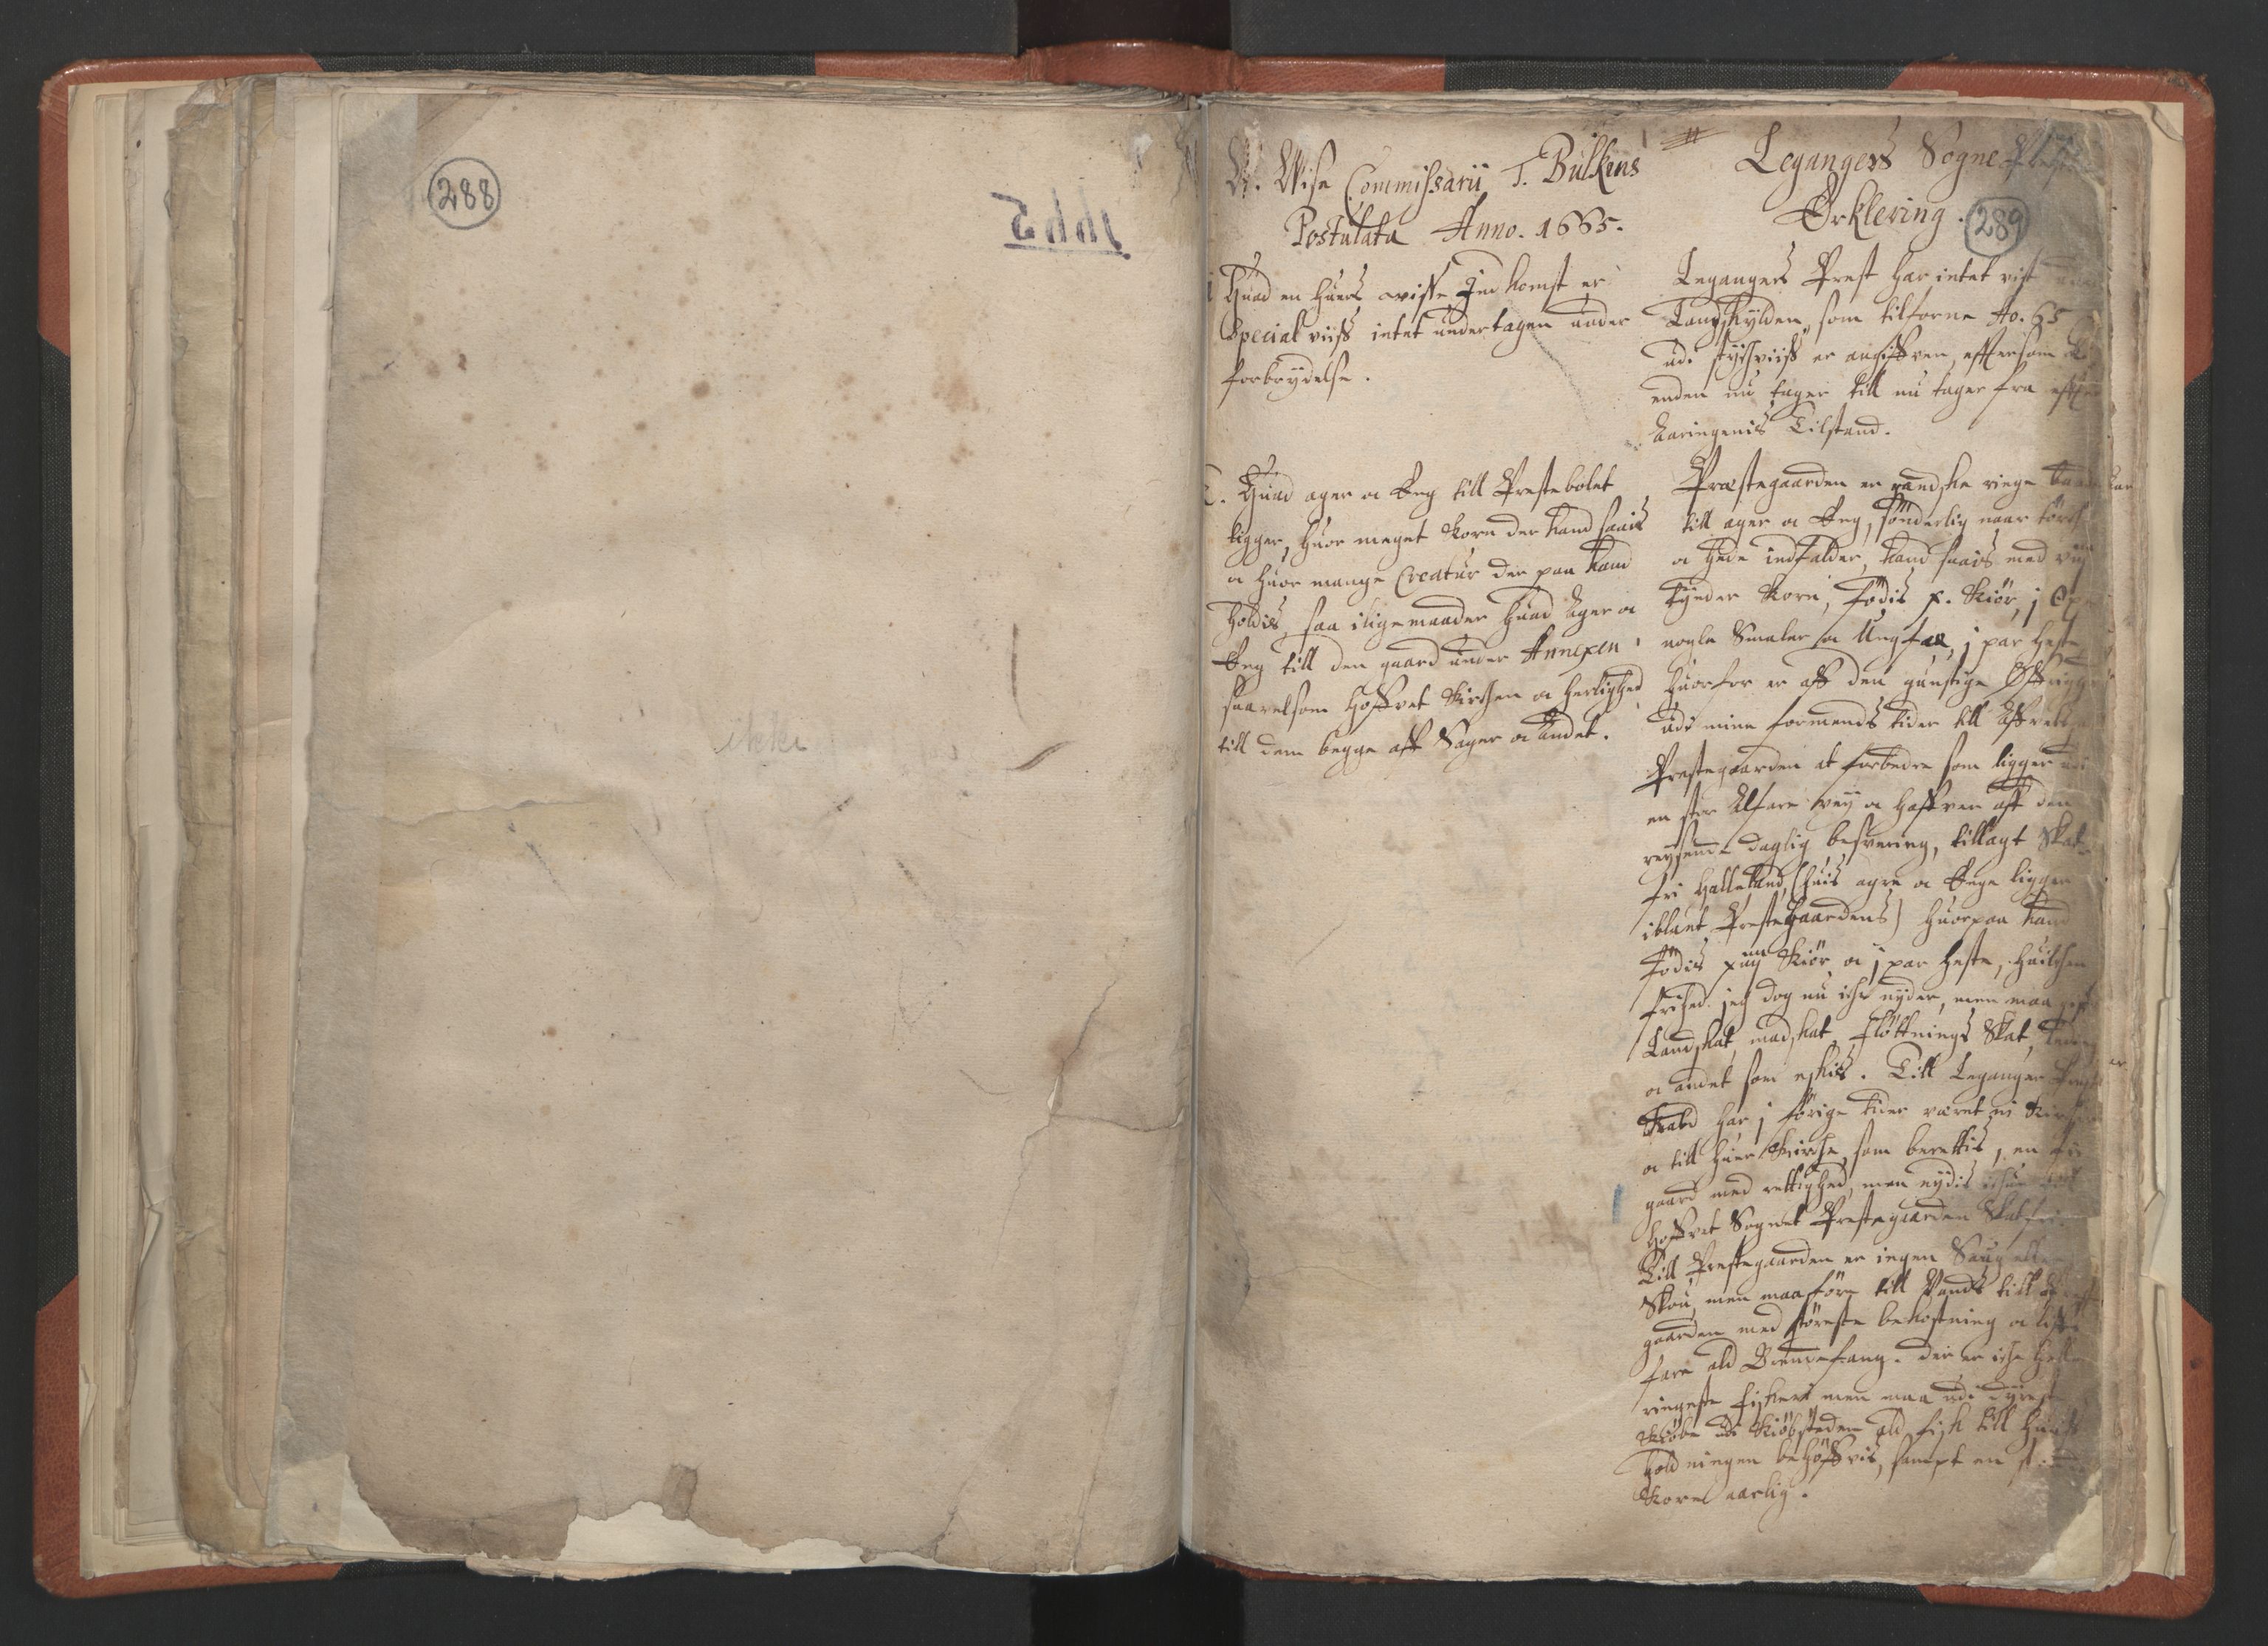 288
1665
ikke
V. Wise Commissarii T. Bulkens
Postulata Anno. 1665.
Huad en huers wisse Indkomst er
Special viiss intet undertagen under
forböydelse.
2. Huad ager oc Eng till Prestebolet
ligger, huor meget Korn der kand saais
oc huor mange Creatur der paa kand
holdis, saa i lige maader huad Ager oc
Eng till den gaard under Annexen
saavelsom Hoffvet Kirchen oc herlighed
till dem begge aff Sager oc andet.
Legangers Sogne
Erklering.
289
Legangers Prest har intet vist
Landskylden, som tilforne Ao. 65
udi stychviiss er angiffven, efftersom
enden nu tager till nu tager fra
Aaringenis Tilstand.
Præstegaarden er gandske ringe
till ager oc Eng, sönderlig naar törche
oc hede indfalder, kand saais med
Tynder Korn, Födis x. Kiör, j
nogle Smaler oc Ungfæ, j par heste
huorfor er aff den gunstige Öffrighed
udi mine formends tider till
Prestegaarden at forbedre som ligger
en stor Alfare vey oc haffver aff den
reysende daglig besvering, tillagt Skat-
fri Halleland, (huis agre oc Enge ligger
iblant PresteGaardens) huorpaa kand
Födis Kiör oc j par heste, huilchen
frihed jeg dog nu iche nyder, men maa
Landskat, madskat, Fløttnings Skat,
oc andet som eskis. Till Leganger
kald har j förige tider været Kircher
oc till huer Kirche, som berettis, en
gaard med rettighed, men nydis
Hoffvet Sognet Prestegaarden Skatfri.
Till Prestegaarden er ingen Saug eller
Skou, men maa före till Vands till
gaarden med störeste bekostning oc liffs
fare ald Brendefang. der er iche
ringeste Fiskeri men maa udi dyreste
Kiöbe udi Kiöbstæden ald fisk till huus
holdningen behöffvis, sampt en
Korn aarlig.